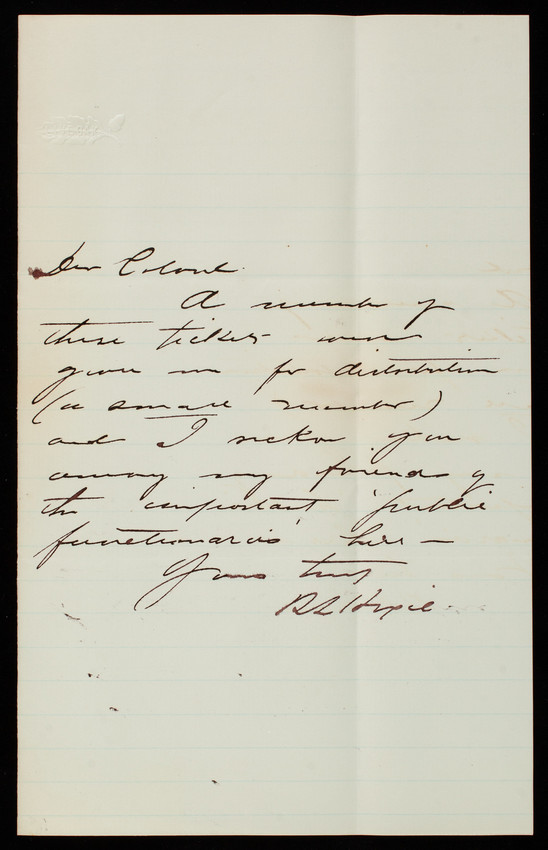 Dear Colonel.
A number of
these tickets were
given me for distribution
(a small number)
and I reckon you
among my friends of
the important 'public
functionaries' here —
Yours truly
R L Hoxie